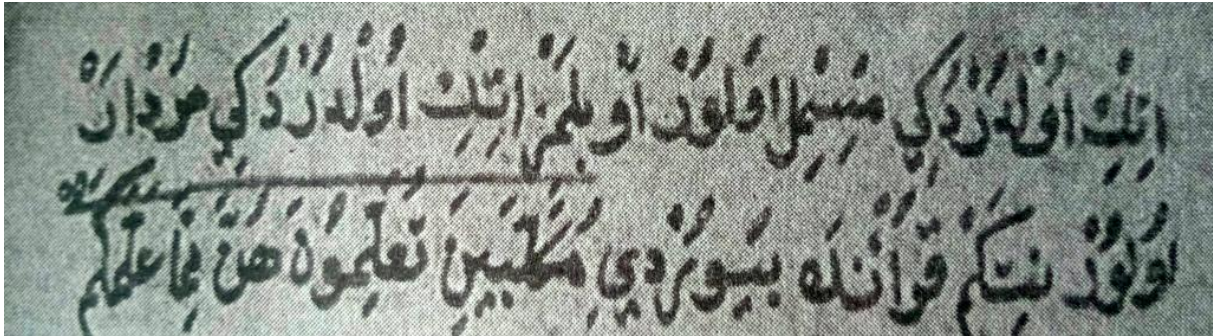 اِتِڭ اُولْدُرْدُكِي مِسْمِلْ اُولُورْ اَوْ بِلْمَزْ اِتِڭ اُولْدُرْدُكِي مُرْدَارْ
اُولُورْ نِتَكِمْ قُرْآنْدَه بُيُورْدِي مُكَلِّبِينَ تُعَلِّمُونَ هُنَّ مِمَّا عَلَّمَكُمُ